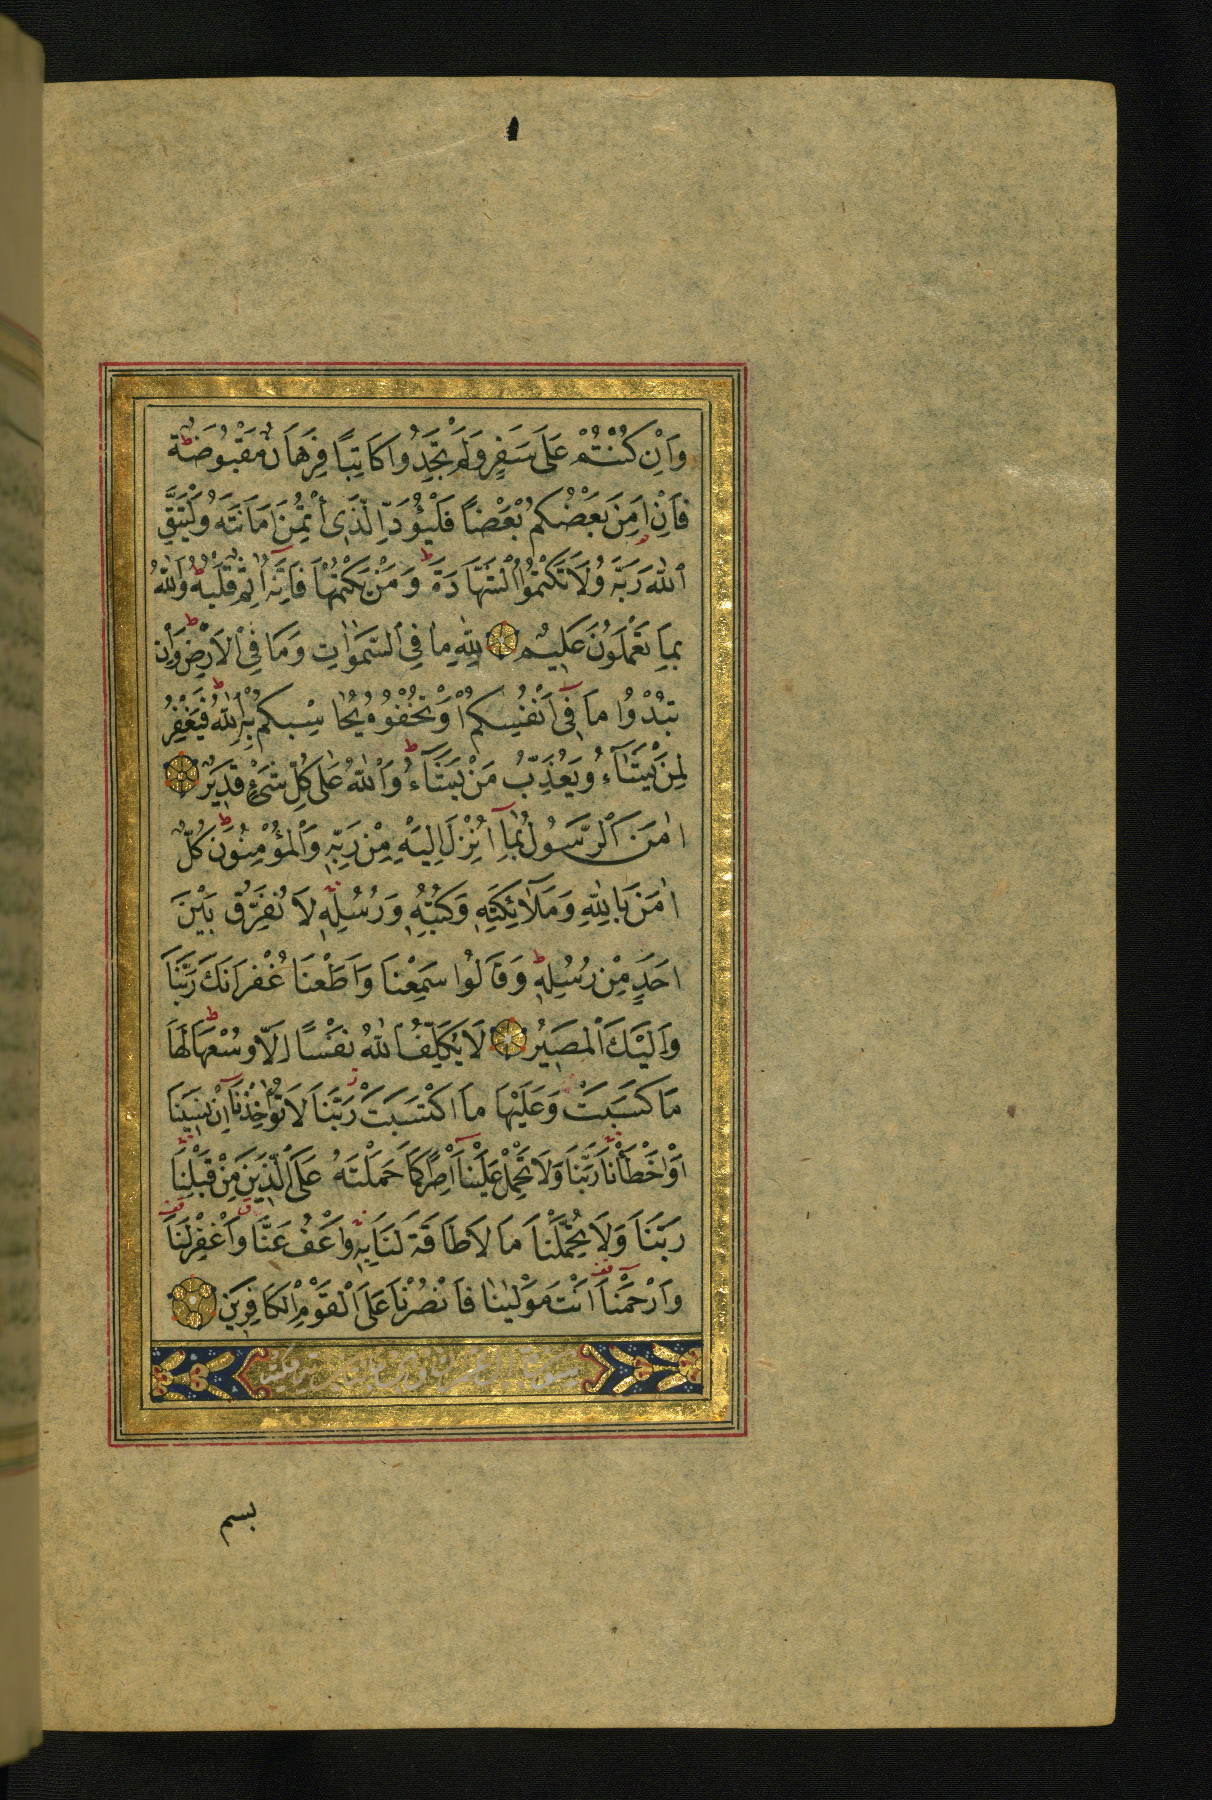 وَاِنْ كُنْتُمْ عَلٰى سَفَرٍ وَلَمْ تَجِدُوا كَاتِبًا فَرِهَانٌ مَقْبُوضَةٌ
فَاِنْ اَمِنَ بَعْضُكُمْ بَعْضًا فَلْيُؤَدِّ الَّذِى اؤْتُمِنَ اَمَانَتَهُ وَلْيَتَّقِ
اللّٰهَ رَبَّهُ وَلَا تَكْتُمُوا الشَّهَادَةَ وَمَنْ يَكْتُمْهَا فَاِنَّهُ اٰثِمٌ قَلْبُهُ وَاللّٰهُ
بِمَا تَعْمَلُونَ عَلِيمٌ لِلّٰهِ مَا فِى السَّمٰوَاتِ وَمَا فِى الْاَرْضِ وَاِنْ
تُبْدُوا مَا فِى اَنْفُسِكُمْ اَوْ تُخْفُوهُ يُحَاسِبْكُمْ بِهِ اللّٰهُ فَيَغْفِرُ
لِمَنْ يَشَاۤءُ وَيُعَذِّبُ مَنْ يَشَاۤءُ وَاللّٰهُ عَلٰى كُلِّ شَىْءٍ قَدِيرٌ
اٰمَنَ الرَّسُولُ بِمَا اُنْزِلَ اِلَيْهِ مِنْ رَبِّهِ وَالْمُؤْمِنُونَ كُلٌّ
اٰمَنَ بِاللّٰهِ وَمَلٰۤئِكَتِهِ وَكُتُبِهِ وَرُسُلِهِ لَا نُفَرِّقُ بَيْنَ
اَحَدٍ مِنْ رُسُلِهِ وَقَالُوا سَمِعْنَا وَاَطَعْنَا غُفْرَانَكَ رَبَّنَا
وَاِلَيْكَ الْمَصِيرُ لَا يُكَلِّفُ اللّٰهُ نَفْسًا اِلَّا وُسْعَهَا لَهَا
مَا كَسَبَتْ وَعَلَيْهَا مَا اكْتَسَبَتْ رَبَّنَا لَا تُؤَاخِذْنَا اِنْ نَسِينَا
اَوْ اَخْطَأْنَا رَبَّنَا وَلَا تَحْمِلْ عَلَيْنَا اِصْرًا كَمَا حَمَلْتَهُ عَلَى الَّذِينَ مِنْ قَبْلِنَا
رَبَّنَا وَلَا تُحَمِّلْنَا مَا لَا طَاقَةَ لَنَا بِهِ وَاعْفُ عَنَّا وَاغْفِرْ لَنَا
وَارْحَمْنَا اَنْتَ مَوْلٰينَا فَانْصُرْنَا عَلَى الْقَوْمِ الْكَافِرِينَ
بسم